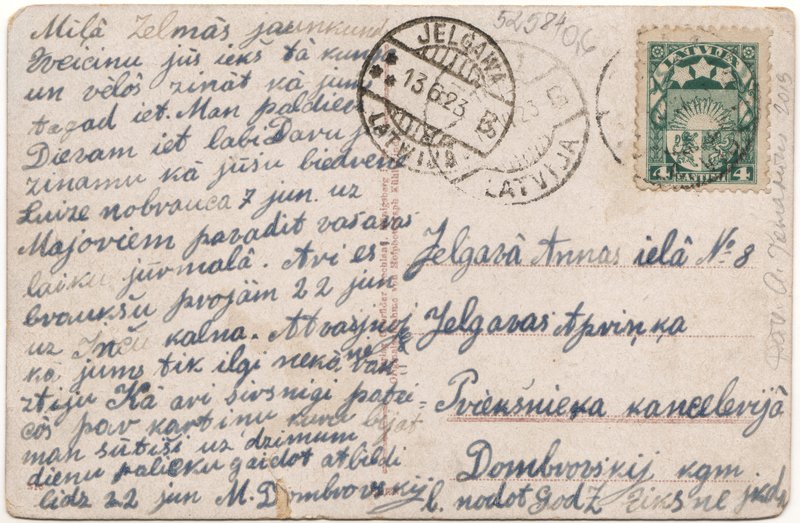 Miļâ Zelmas jaunkund
Sveicinu jūs iekš tâ kun
un vēlōs zināt kâ jum
tagad iet. Man paldiev
Dievam iet labi Daru j
zinamu kâ jūsu biedrene
Luize nobrauca 7 jun. uz
Majoriem pavadit vasaras
laiku jūrmalâ. Ari es
braukšu projām 22 jun
uz Inču kalna. Atvainoj
ka jums tik ilgi neka ne rak
ztiju Kâ ari sirsnigi patei
cos par kartinu kuru bijat
man sūtiši uz dzimum
dienu palieku gaidot atbildi
lidz 22 jun M. Dombrovskij
52984
JELGAWA
13 6 23
LATWIJA
LATVIJA
LATVIJA
4 LATVIJA 4
Jelgavâ Annas ielâ No 8
Jelgavas Apriņķa
Priekšnieka kancelerijâ
Dombrovskij kgm
l. nodot God Z Eiksne jkdz
2013